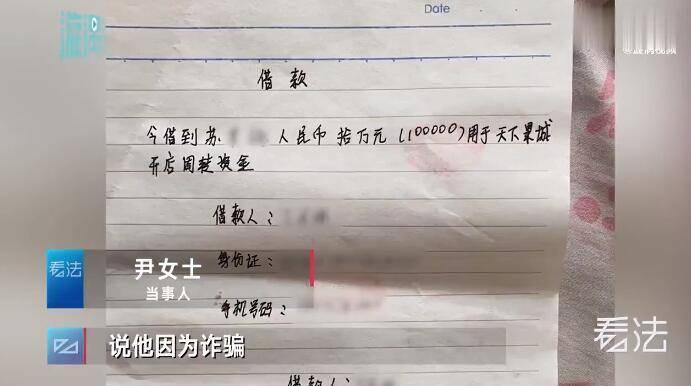 Date
借款
今借到苏 人民币拾万元(100000)用于天下果城
开店周转资金
借款人：
身份证：
手机号码：
借款人：
看法
尹女士
当事人
说他因为诈骗
看法